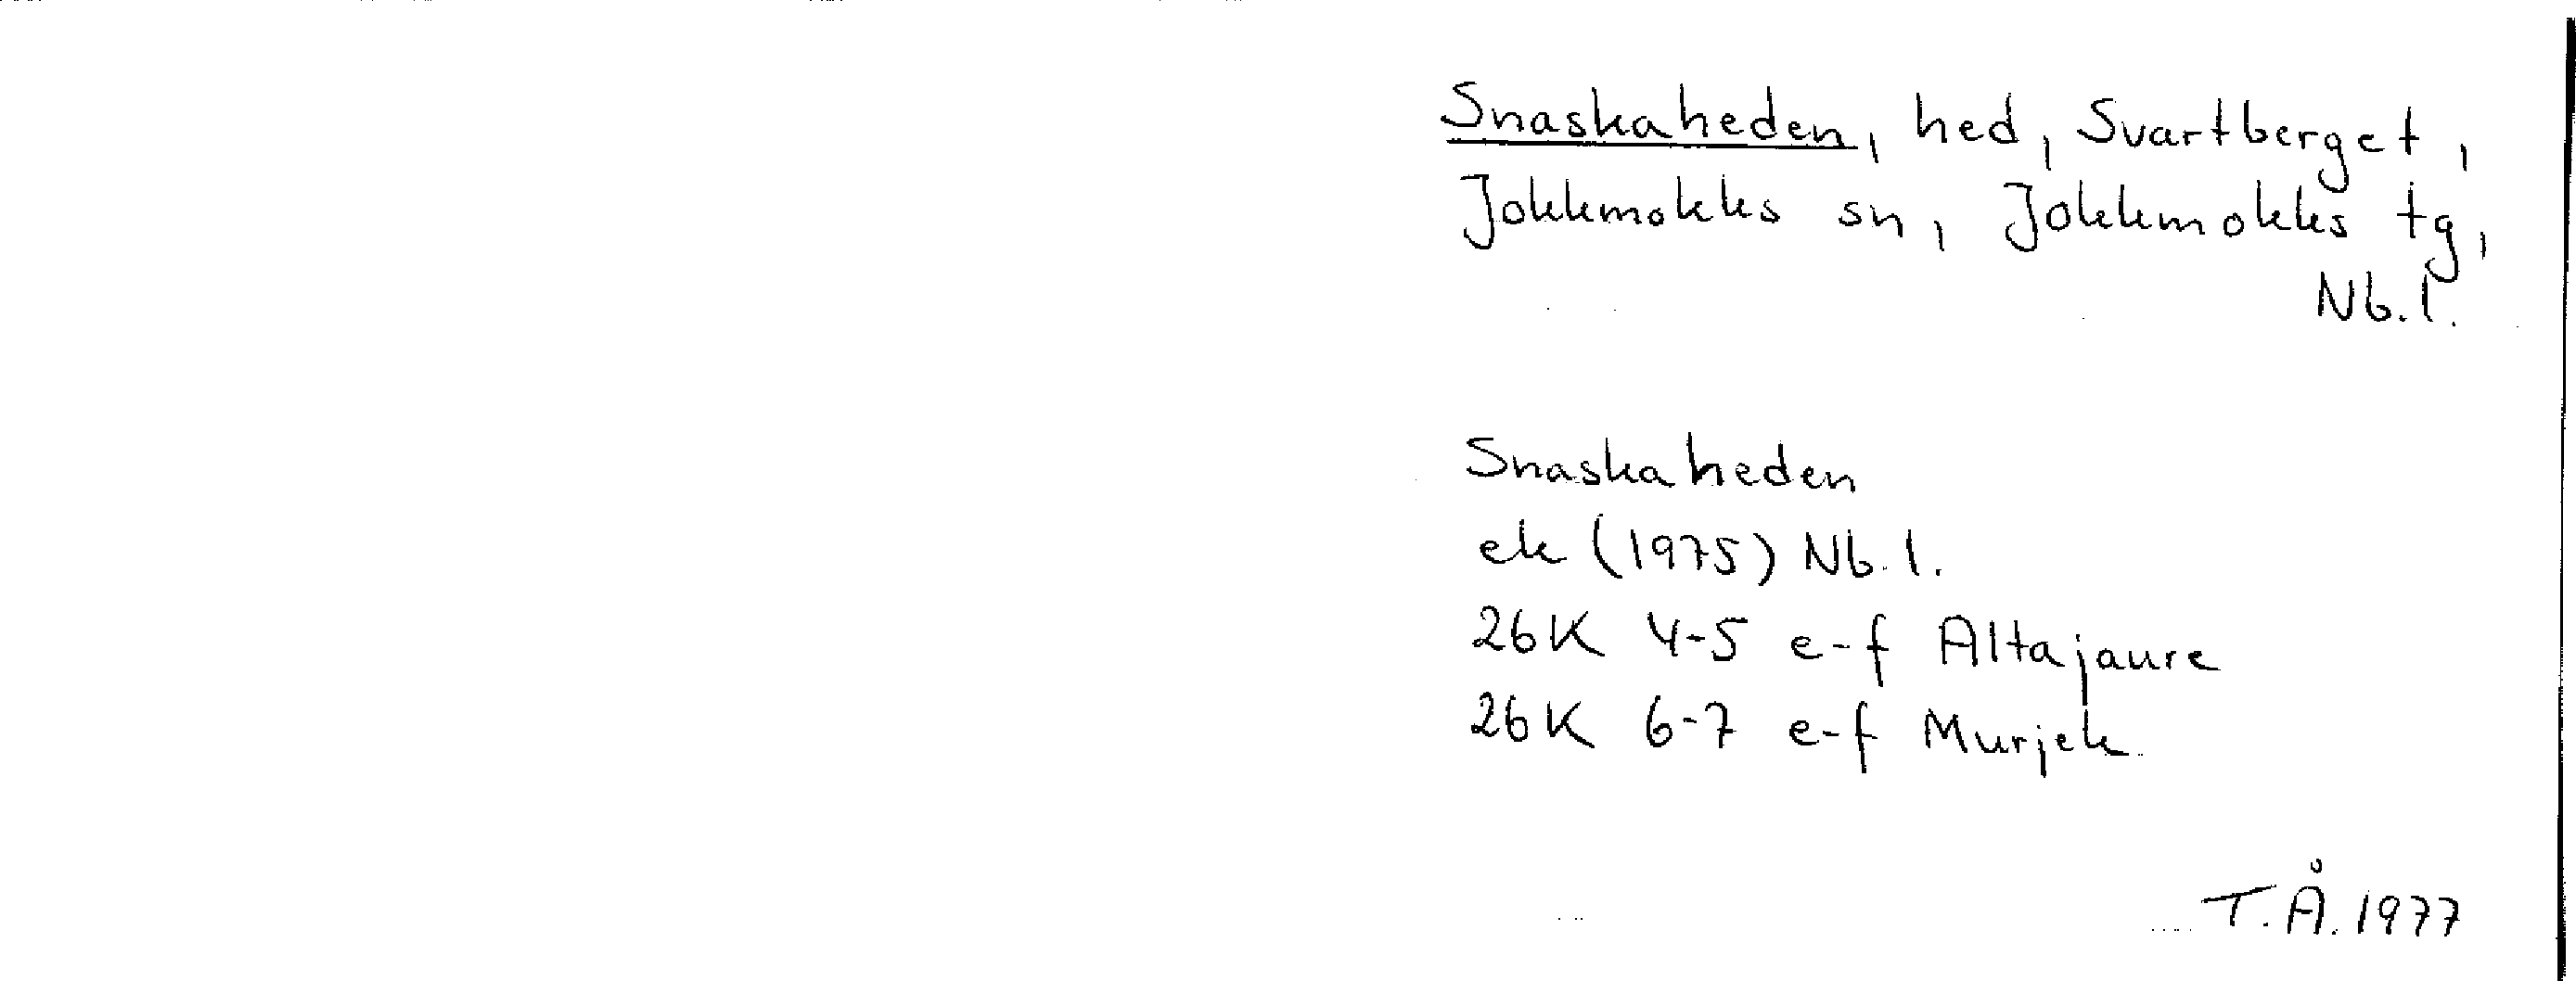 Snaskaheden, hed, Svartberget,
Jokkmokks sn, Jokkmokks tg,
Nb.l.
Snaskaheden
ek (1975) Nb.l.
26K 4-5 e-f Altajaure
26K 6-7 e-f Murjek
T.Å. 1977